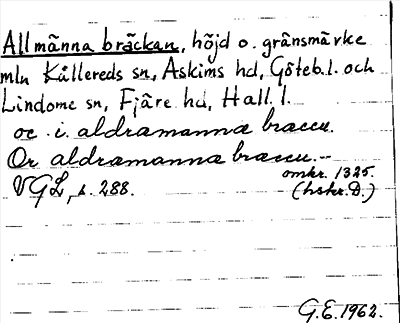 Allmänna bräckan, höjd o. gränsmärke
mln Kållereds sn, Askims hd, Göteb.l. och
Lindome sn, Fjäre hd, Hall. l.
oc . i. aldramanna bræccu.
Or aldramanna bræccu. --
omkr. 1325.
VGL, s. 288. (hskr. D.)
G.E. 1962.